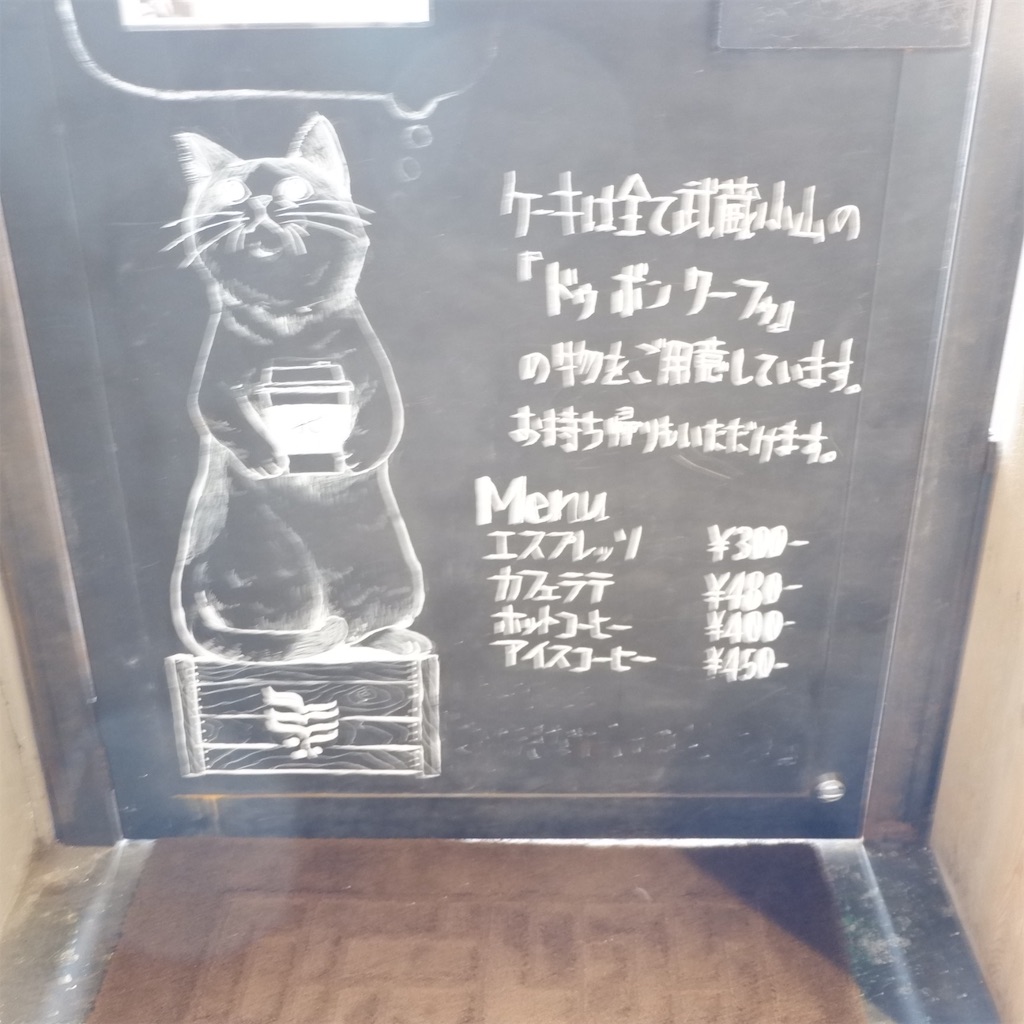 ケーキは全て武蔵小山の
『ドゥ ボン クーフゥ』
の物をご用意しています。
お持ち帰りもいただけます。
Menu
エスプレッソ ¥300-
カフェラテ ¥480-
ホットコーヒー ¥400-
アイスコーヒー ¥450-